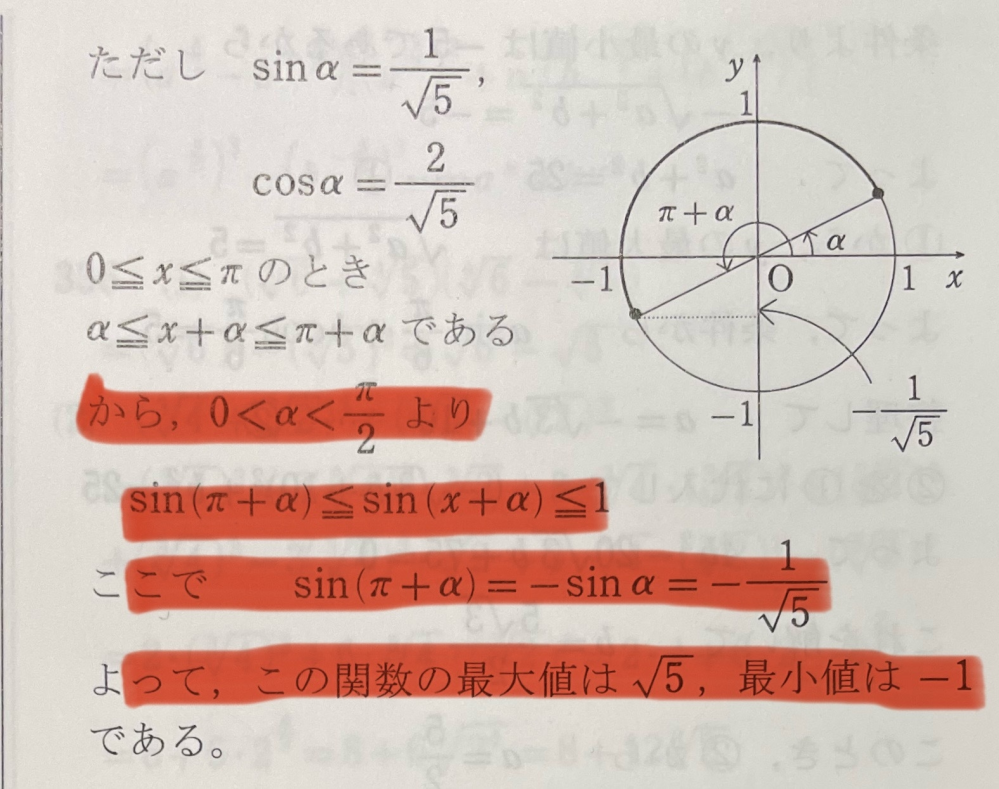 ただし sinα=1/√5,
cosα=2/√5
0≦x≦πのとき
α≦x+α≦π+αである
から, 0<α<π/2 より
sin(π+α)≦sin(x+α)≦1
ここで sin(π+α)=-sinα=-1/√5
よって, この関数の最大値は√5, 最小値は-1
である。
y
1
π+α
α
-1
O
1
x
-1
-1/√5